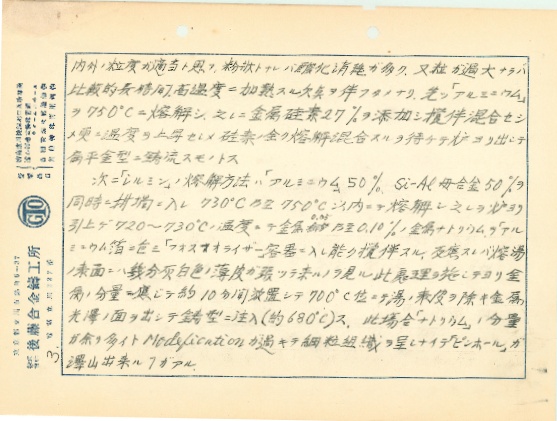 内外ノ粒度ガ適当ト思フ、粉状トナレバ酸化消耗ガ多ク、又粒ガ過大ナラバ
比較的長時間、高温度ニ加熱スル欠点ヲ伴フカラナリ、先ヅ「アルミニウム」
ヲ750°Cニ熔解シ、之レニ金属硅素27%ヲ添加シ攪拌混合セシ
メ更ニ温度ヲ上昇セシメ硅素ノ全ク熔解混合スルヲ待ケテ炉ヨリ出シテ
扁平金型ニ鋳流スモノトス
次ニ「シルミン」ノ熔解方法ハ「アルミニウム」50%、Si-Al母合金50%ヲ
同時ニ坩堝ニ入レ730°C乃至750°C以内ニテ熔解シ之レヲ炉ヨリ
引上ゲ720〜730°Cノ温度ニテ金属0.05乃至0.10%ノ金属ナトリウムヲアル
ミニウム箔ニ包ミ「フオスフオライザー」容器ニ入レ能ク攪拌スル、反應スレバ熔湯
ノ表面ニハ幾分灰白色ノ薄皮ガ張ツテ来ルノヲ見ル、此処理ヲ施シテヨリ金
属ノ分量ニ應ジテ約10分間放置シテ700°C位ニテ湯ノ表皮ヲ除キ金属
光澤ノ面ヲ出シテ鋳型ニ注入(約680°C)ス、此場合「ナトリウム」ノ分量
ガ余リ多イト Modification ガ過ギテ細粒組織ヲ呈シナイデ「ピンホール」ガ
澤山出来ルヿガアル、
GTO
後藤合金鑄工所
3.